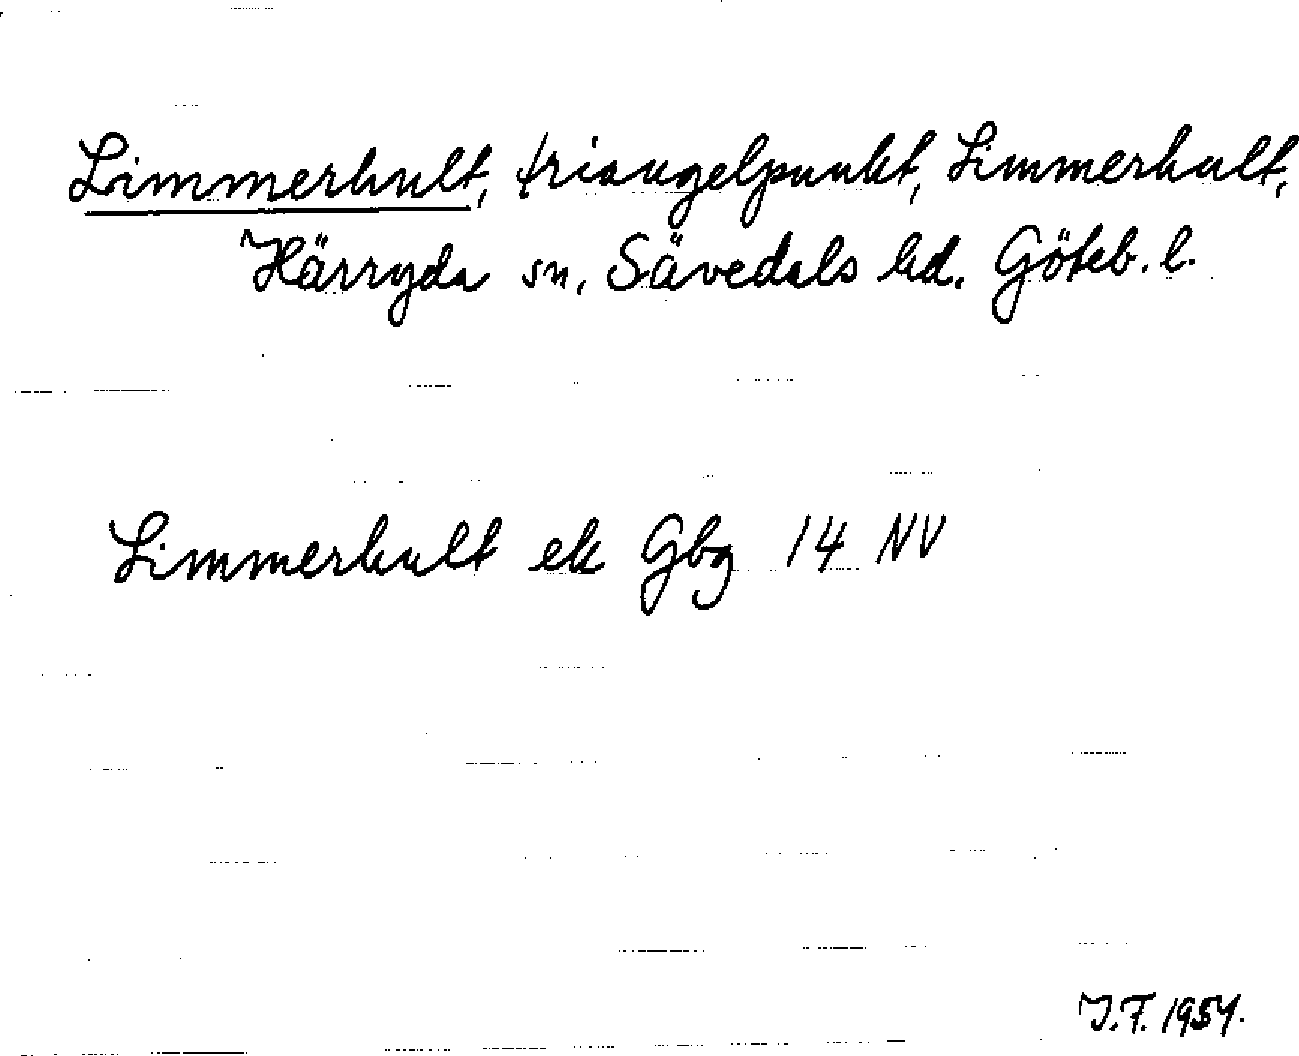 Limmerhult, triangelpunkt, Limmerhult,
Härryda sn, Sävedals hd. Göteb. l.
Limmerhult ek Gbg 14 NV
J.F. 1954.